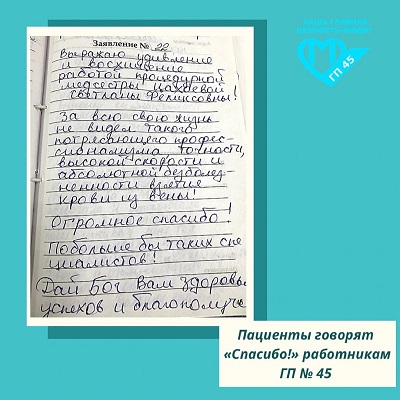 НАША ГЛАВНАЯ
ЦЕННОСТЬ - ЛЮДИ!
ГП 45
Заявление № 22
Выражаю удивление
и восхищение
работой процедурной
медсестры Цахаевой
Светланы Феликсовны!
За всю свою жизнь
не видел такого
потрясающего профес-
сионализма, точности,
высокой скорости и
абсолютной безболез-
ненности взятие
крови из вены!
Огромное спасибо!
Побольше бы таких спе
циалистов!
Дай Бог Вам здоровья
успехов и благополучи
Пациенты говорят
«Спасибо!» работникам
ГП № 45